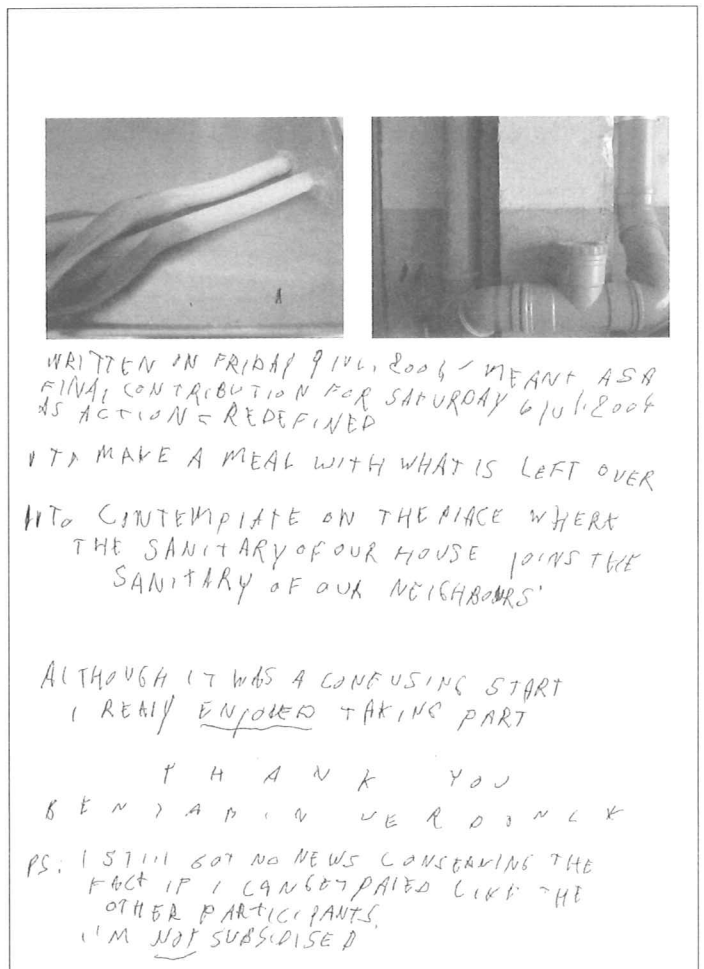 WRITTEN ON FRIDAY 9 JUL. 2004 - MEANT AS A
FINAL CONTRIBUTION FOR SATURDAY 6 JUL. 2004
AS ACTION = REDEFINED
I TO MAKE A MEAL WITH WHAT IS LEFT OVER
II TO CONTEMPLATE ON THE PLACE WHERE
THE SANITARY OF OUR HOUSE JOINS THE
SANITARY OF OUR NEIGHBOURS'
ALTHOUGH IT WAS A CONFUSING START
I REALY ENJOYED TAKING PART
THANK YOU
BENJAMIN VERDONCK
PS: I STILL GOT NO NEWS CONSERNING THE
FACT IF I CAN GET PAIED LIKE THE
OTHER PARTICIPANTS.
I'M NOT SUBSIDISED